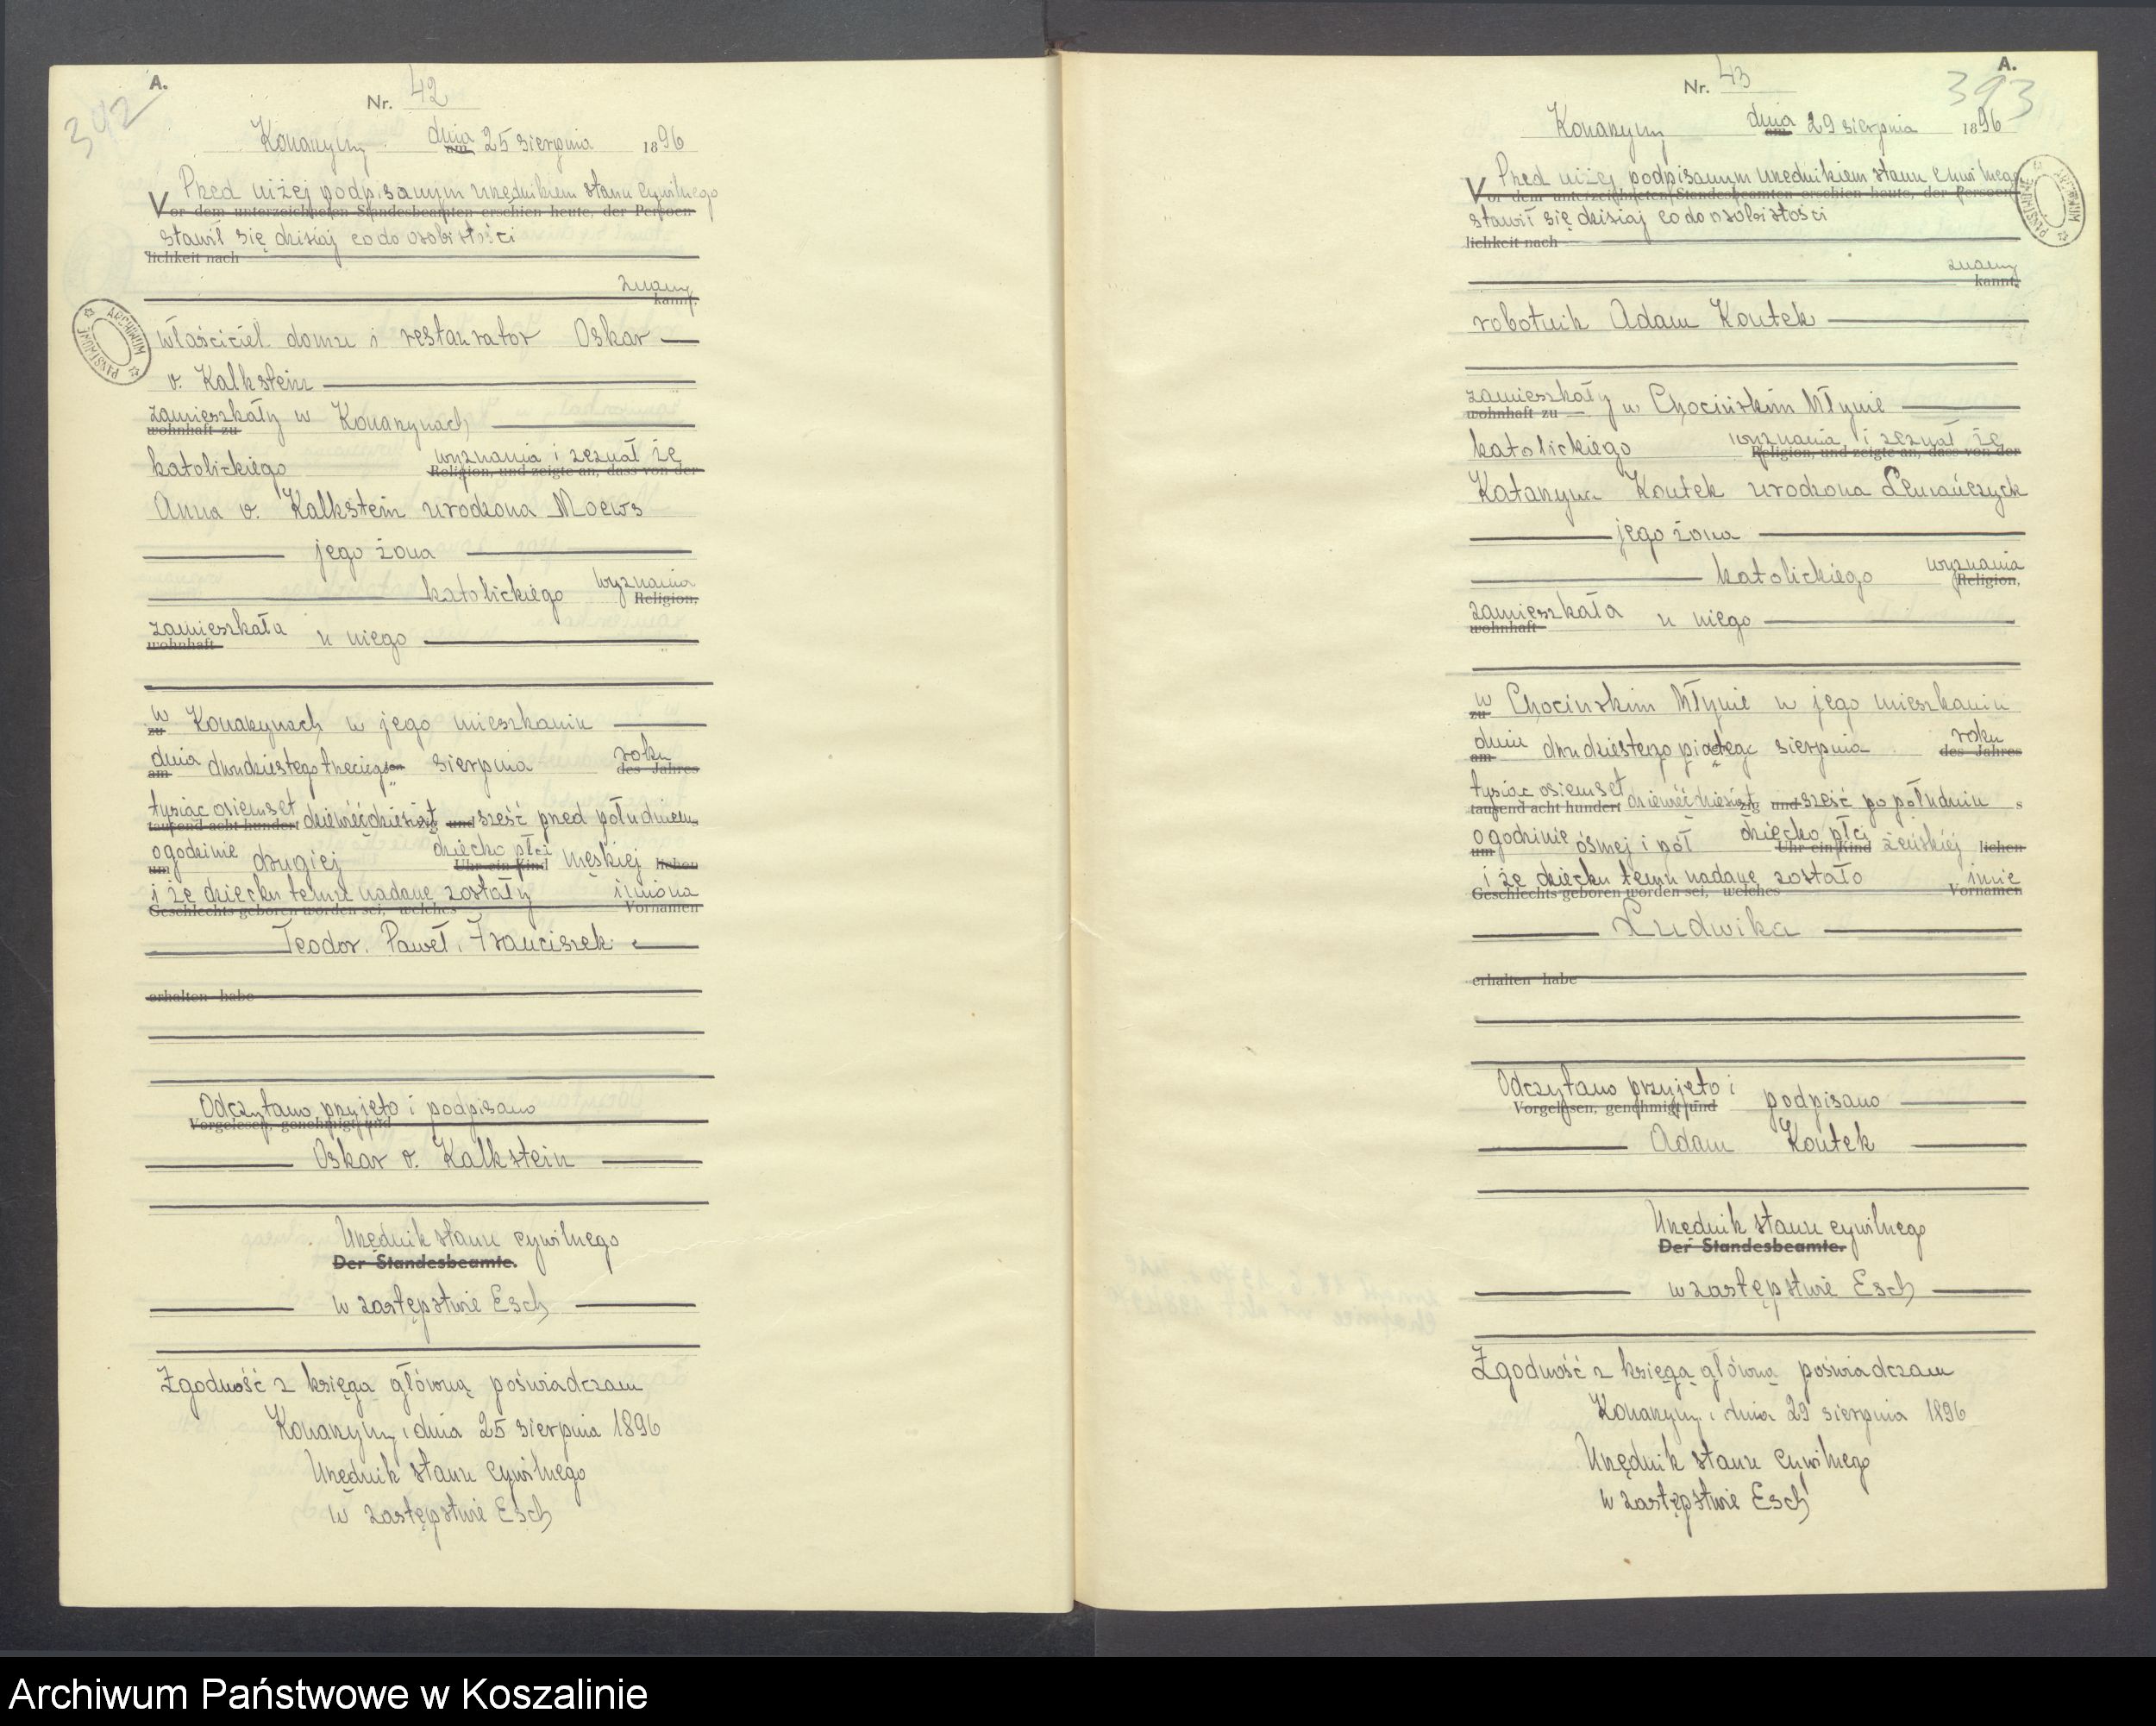 A.
342
Nr. 42
Konarzyny dnia am 25 sierpnia 1896
Przed niżej podpisanym urzędnikiem stanu cywilnego
Vor dem unterzeichneten Standesbeamten erschien heute, der Persoen-
stawił się dzisiaj co do osobistości
lichkeit nach
znany
kannt.
właściciel domu i restaurator Oskar
v. Kalkstein
zamieszkały w Konarzynach
wohnhaft zu
katolickiego wyznania i zeznał że
Religion, und zeigte an, dass von der
Anna v. Kalkstein urodzona Moews
jego żona
katolickiego wyznania
Religion,
zamieszkała u niego
wohnhaft
w Konarzynach w jego mieszkaniu
zu
dnia dwudziestego trzeciego sierpnia roku
am des Jahres
tysiąc osiemset dziewięćdziesiąt sześć przed południem
tausend acht hundert zig und
o godzinie drugiej dziecko płci męskiej
um Uhr ein Kind lichen
i że dziecku temu nadane zostały imiona
Geschlechts geboren worden sei, welches Vornamen
Teodor, Paweł, Franciszek
erhalten habe
Odczytano, przyjęto i podpisano
Vorgelesen, genehmigt und
Oskar v. Kalkstein
Urzędnik stanu cywilnego
Der Standesbeamte.
w zastępstwie Esch
Zgodność z księgą główną poświadczam
Konarzyny, dnia 25 sierpnia 1896
Urzędnik stanu cywilnego
w zastępstwie Esch
ARCHIWUM PAŃSTWOWE
A.
393
Nr. 43
Konarzyny dnia am 29 sierpnia 1896
Przed niżej podpisanym urzędnikiem stanu cywilnego
Vor dem unterzeichneten Standesbeamten erschien heute, der Persoen-
stawił się dzisiaj co do osobistości
lichkeit nach
znany
kannt.
robotnik Adam Kontek
zamieszkały w Chocińskim Młynie
wohnhaft zu
katolickiego wyznania i zeznał że
Religion, und zeigte an, dass von der
Katarzyna Kontek urodzona Lemańczyck
jego żona
katolickiego wyznania
Religion,
zamieszkała u niego
wohnhaft
w Chocinskim Młynie w jego mieszkaniu
zu
dnia dwudziestego piątego sierpnia roku
am des Jahres
tysiąc osiemset dziewięćdziesiąt sześć po południu
tausend acht hundert zig und s
o godzinie ósmej i pół dziecko płci żeńskiej
um Uhr ein Kind lichen
i że dziecku temu nadane zostało imię
Geschlechts geboren worden sei, welches Vornamen
Ludwika
erhalten habe
Odczytano przyjęto i podpisano
Vorgelesen, genehmigt und
Adam Kontek
Urzędnik stanu cywilnego
Der Standesbeamte.
w zastępstwie Esch
Zgodność z księgą główną poświadczam
Konarzyny, dnia 29 sierpnia 1896
Urzędnik stanu cywilnego
w zastępstwie Esch
ARCHIWUM PAŃSTWOWE
Archiwum Państwowe w Koszalinie